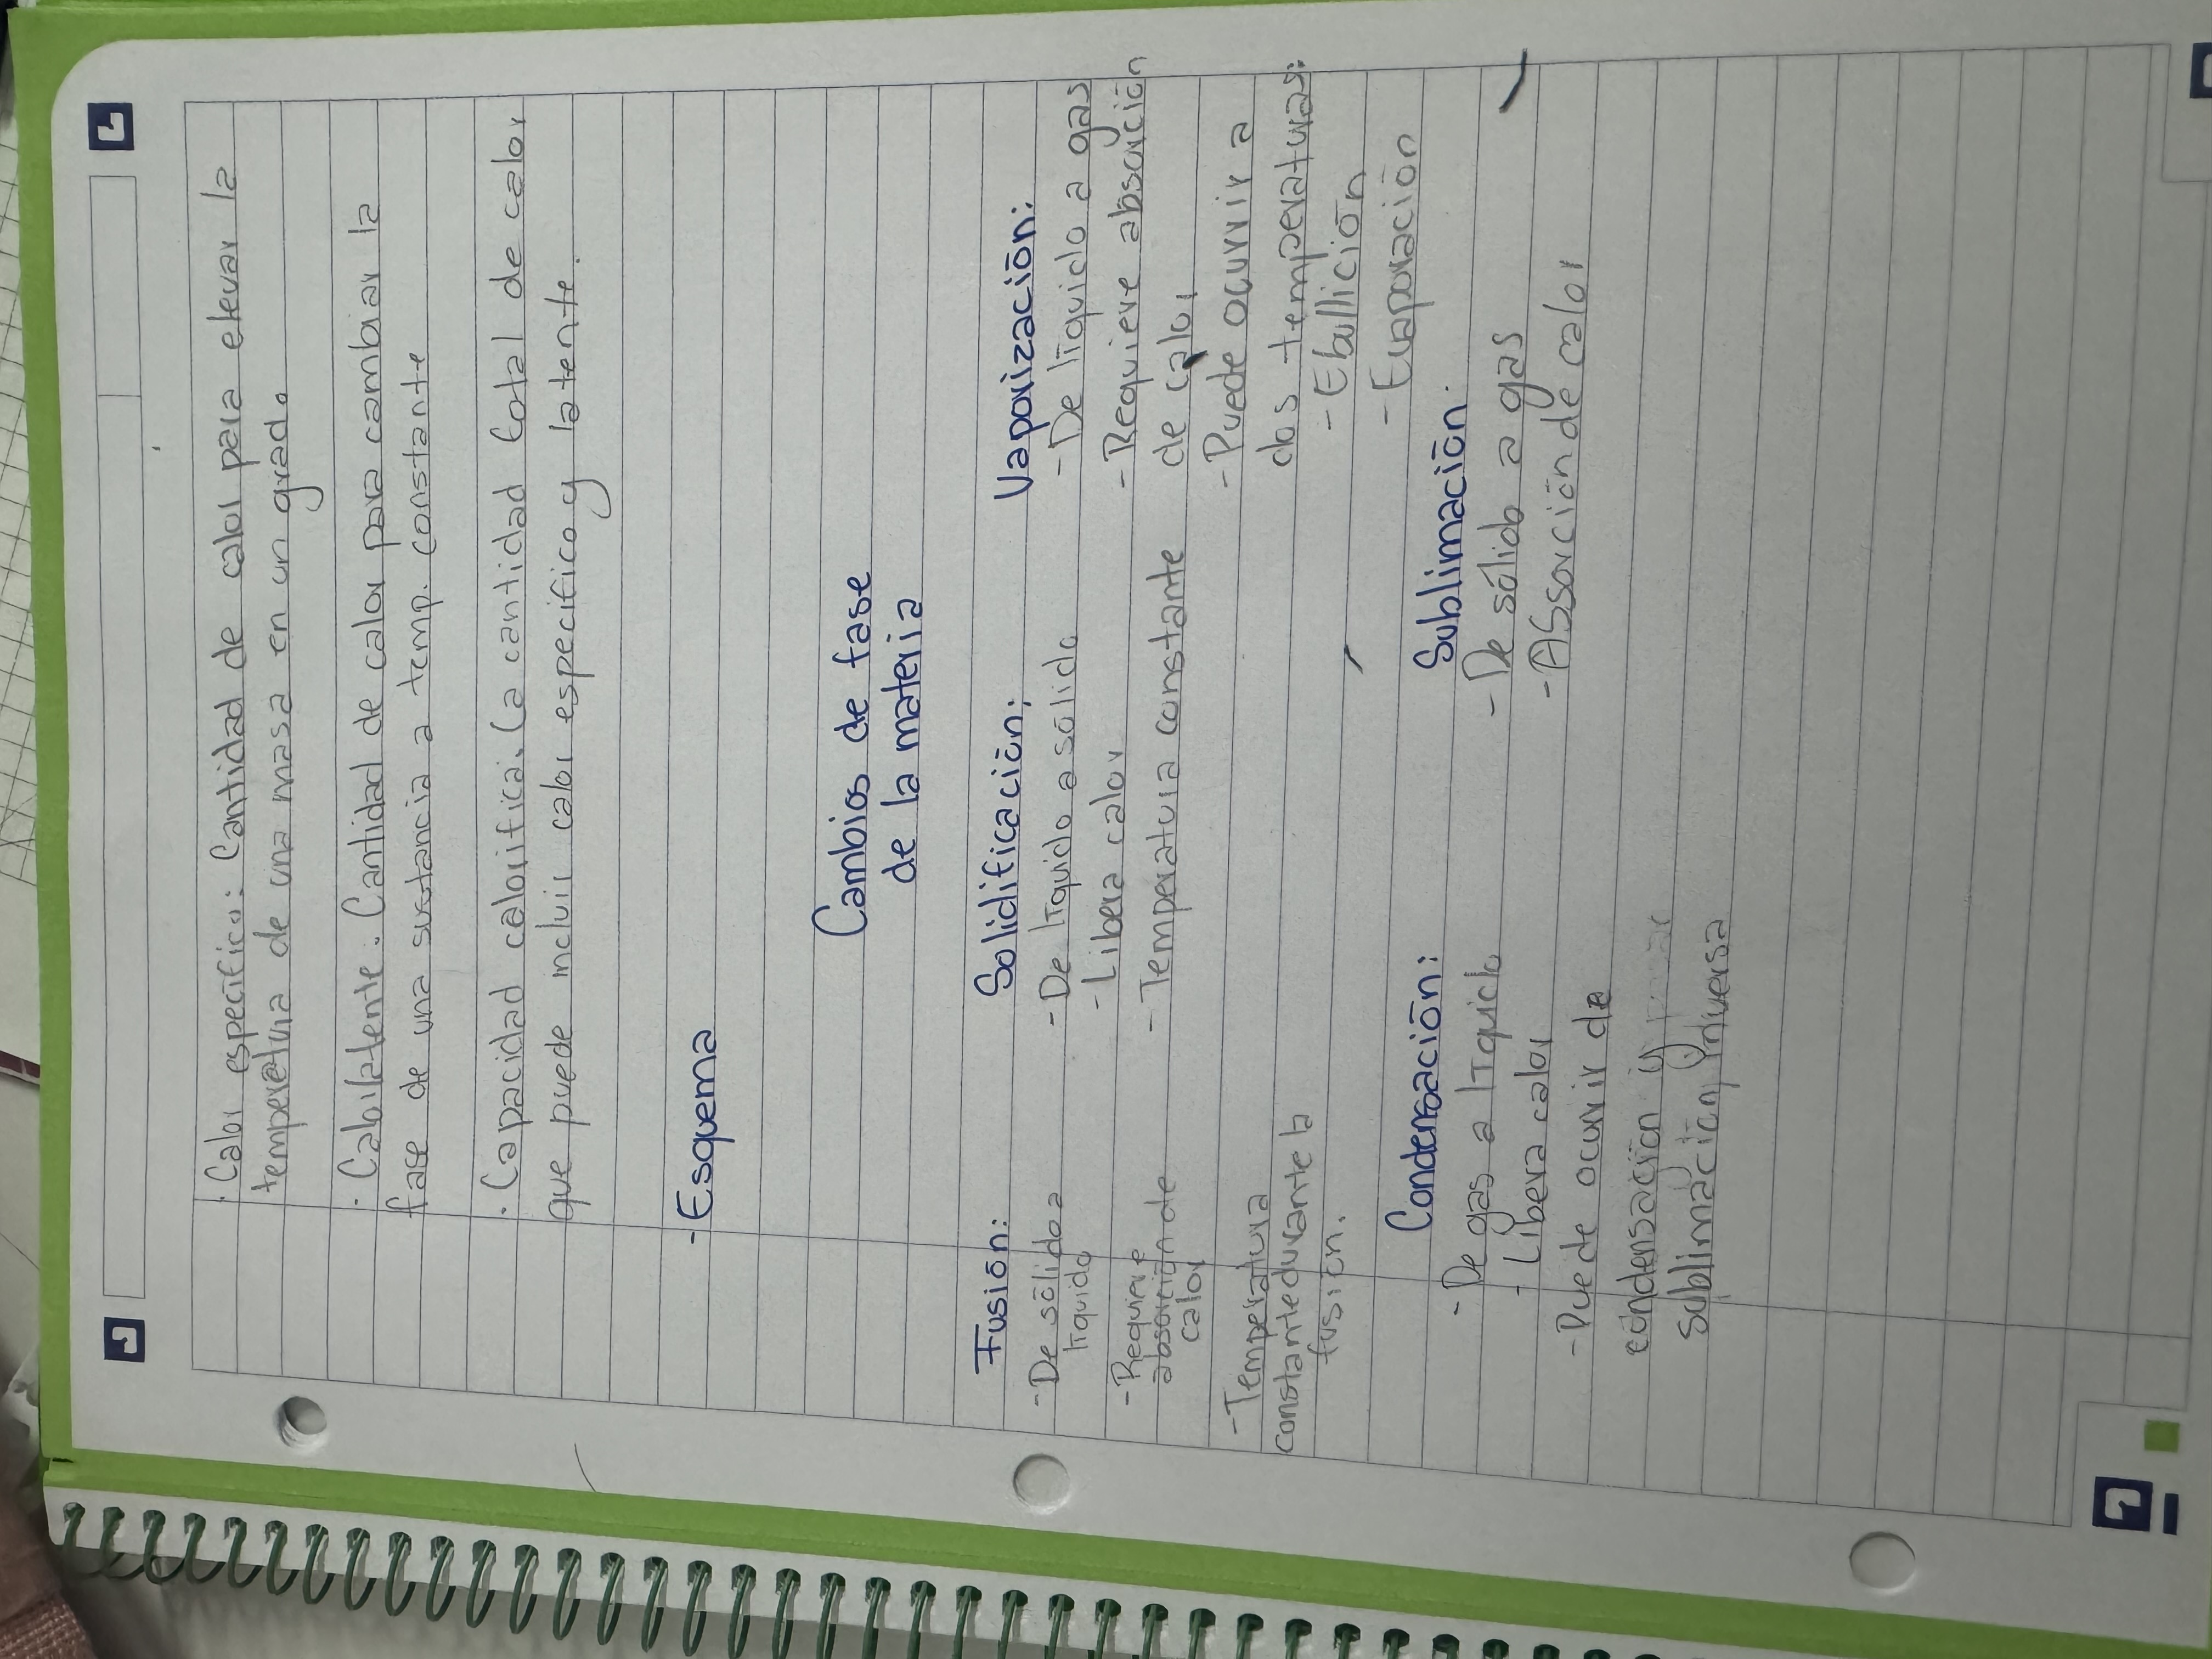 · Calor especifico: Cantidad de calor para elevar la
temperetura de una masa en un grado
· Calor latente: Cantidad de calor para cambiar la
fase de una sustancia a temp. constante
· Capacidad calorifica. La cantidad total de calor
que puede incluir calor especifico y latente.
- Esquema
Cambios de fase
de la materia
Fusión:
- De sólido a
líquido
- Requiere
absorción de
calor
- Temperatura
constante durante la
fusión.
Solidificación:
- De líquido a sólido
- Libera calor
- Temperatura constante
Vaporización:
- De líquido a gas
- Requiere absorción
de calor
- Puede ocurrir a
dos temperaturas:
- Ebullición
- Evaporación
Condensación:
- De gas a líquido
- Libera calor
- Puede ocurrir de
condensación y
sublimación inversa
Sublimación:
- De sólido a gas
- Absorción de calor